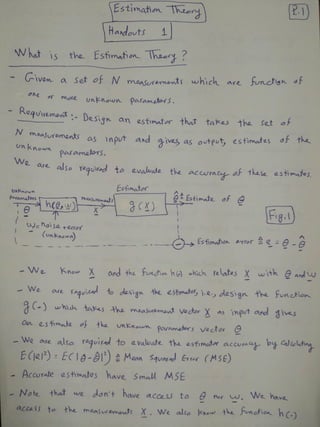 Estimation Theory
E.1
Handouts 1
What is the Estimation Theory?
- Given a set of N measurements which are function of
one or more unknown parameters.
- Requirement:- Design an estimator that takes the set of
N measurements as input and gives as output, estimates of the
unknown parameters.
We are also required to evaluate the accuracy of these estimates.
unknown parameters θ
h(θ, w)
measurements X
Estimator
g(X)
θ̂ ≜ Estimate of θ
w = noise vector
(unknown)
Fig.1
Estimation error ≜ e = θ - θ̂
- We know X and the function h(.) which relates X with θ and w
- We are required to design the estimator, i.e., design the function
g(-) which takes the measurement vector X as input and gives
an estimate of the unknown parameters vector θ
- We are also required to evaluate the estimator accuracy by calculating
E(|e|²) = E(|θ - θ̂|²) ≜ Mean Squared Error (MSE)
- Accurate estimates have small MSE
- Note that we don't have access to θ nor w. We have
access to the measurements X. We also know the function h(-)